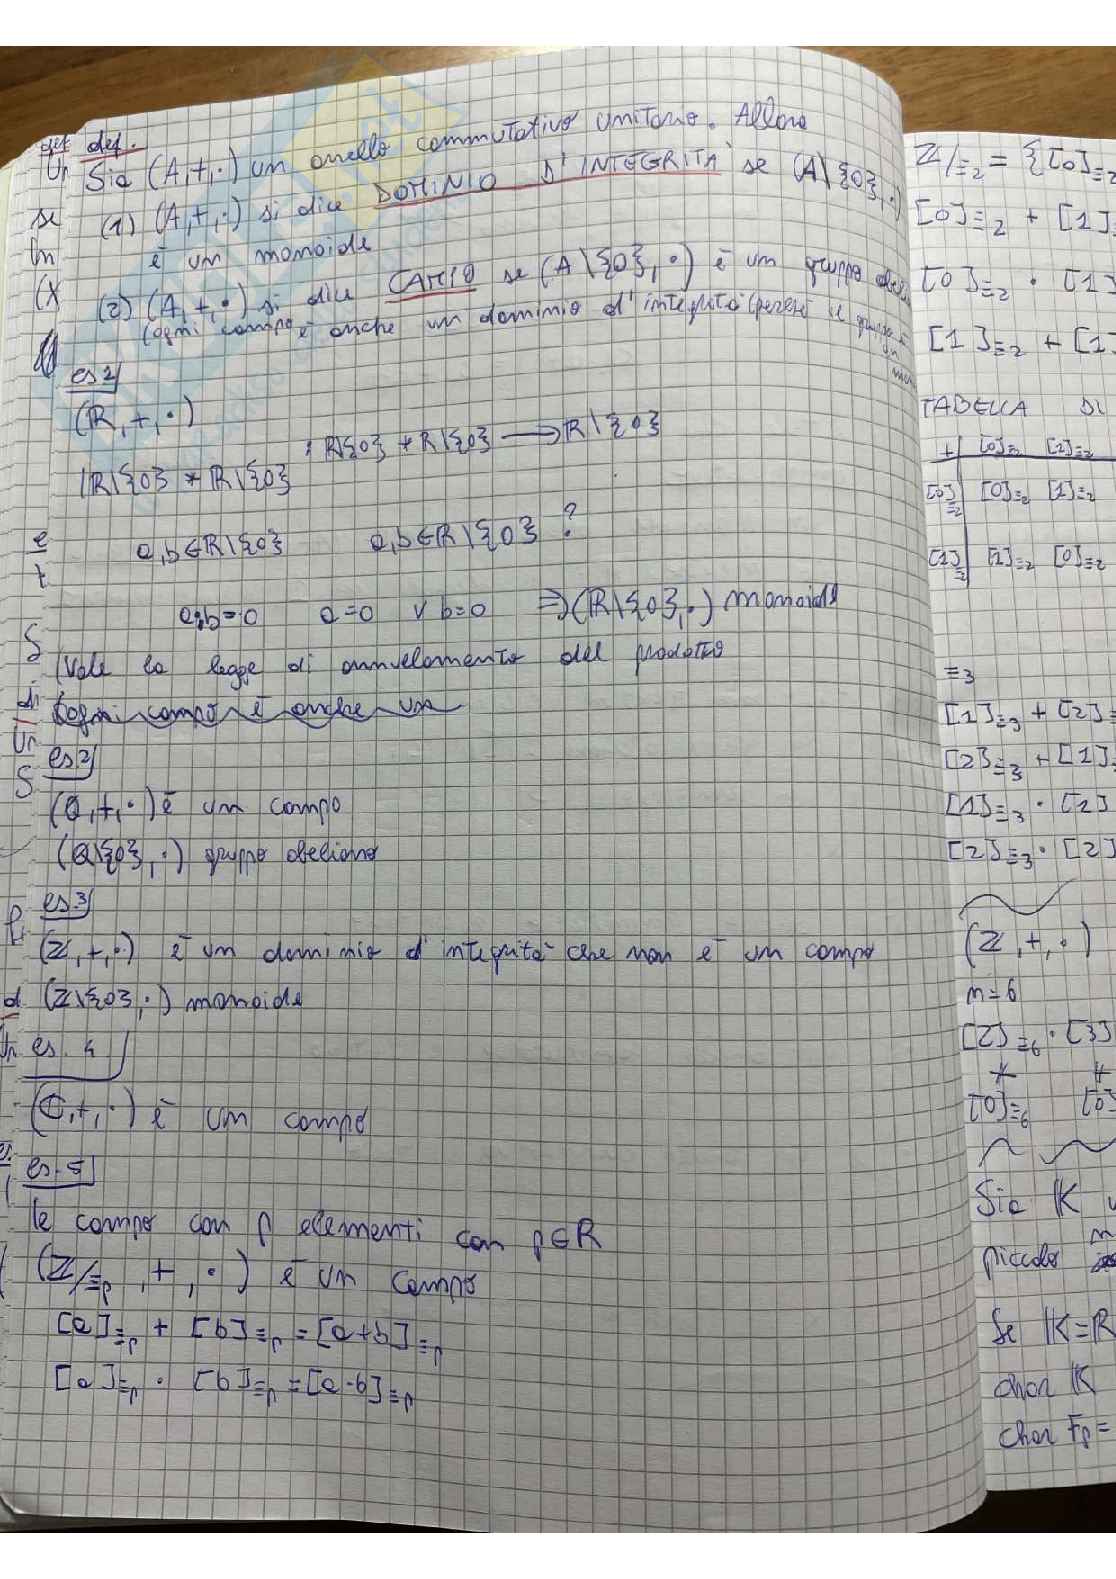 def.
Sia (A,+,·) un anello commutativo unitario. Allora
(1) (A,+,·) si dice DOMINIO D'INTEGRITA' se (A\{0},·)
è un monoide
(2) (A,+,·) si dice CAMPO se (A\{0},·) è un gruppo
(ogni campo è anche un dominio d'integrità (perché il gruppo è
es 1
(R,+,·)
: R\{0} * R\{0} → R\{0}
R\{0} * R\{0}
a,b∈R\{0} a,b∈R\{0} ?
a·b=0 a=0 ∨ b=0 ⇒(R\{0},·) monoide
(Vale la legge di annullamento del prodotto
(ogni campo è anche un
es.2
(Q,+,·) è un campo
(Q\{0},·) gruppo abeliano
es.3
(Z,+,·) è un dominio d'integrità che non è un campo
(Z\{0},·) monoide
es. 4
(C,+,·) è un campo
es. 5
Ie campo con p elementi con p∈R
(Z/≡p ,+,·) è un campo
[a]≡p + [b]≡p = [a+b]≡p
[a]≡p · [b]≡p = [a·b]≡p
Z/≡2 = {[0]≡2
[0]≡2 + [1]
[0]≡2 · [1]
[1]≡2 + [1]
TABELLA DI
+ [0]≡2 [1]≡2
[0]≡2 [0]≡2 [1]≡2
[1]≡2 [1]≡2 [0]≡2
≡3
[1]≡3 + [2]
[2]≡3 + [1]
[1]≡3 · [2]
[2]≡3 · [2]
(Z,+,·)
n=6
[2]≡6 · [3]
[0]≡6 [0]
Sia K
piccolo
Se K=R
char K
char Fp =